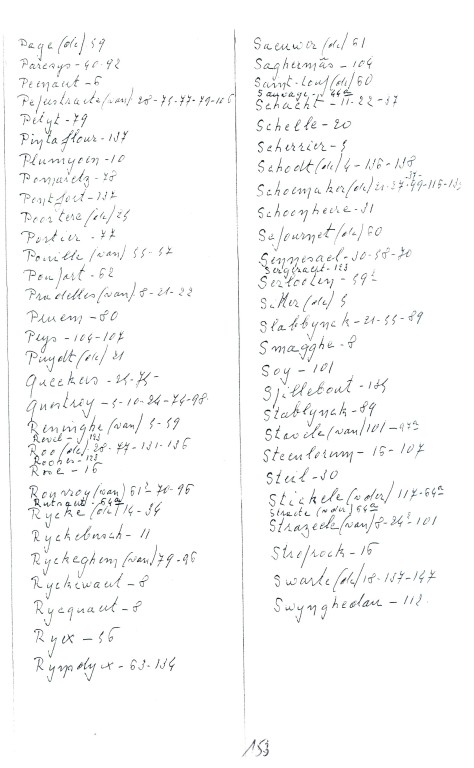 Page (de) 59
Paresys - 40-92
Peenaut - 6
Pelyt - 79
Pintaflour - 137
Plumyoen - 10
Pont fort - 132
Poortere (de) 25
Portier - 77
Poville (van) 55-57
Poufart - 62
Pradelles (van) 8-21-22
Pruem - 80
Peys - 104-107
Puydt (de) 21
Queekers - 25-75-
Questroy - 5-10-24-74-98
Reninghe (van) 5-59
Roo (de) 28-77-131-136
Rooher - 123
Rove - 16
Rouvroy (van) 61²-70-95
Rutnaut - 64a
Rycke (de) 14-34
Ryckebusch - 11
Ryckeghem (van) 79-96
Ryckewaert - 8
Rycquaert - 8
Rycx - 56
Rympdycx - 63-134
Saeuwer (de) 61
Saghermäs - 104
Saint-Leuf (de) 60
Sauvage - 44a
Schacht - 11-22-37
Schelle - 20
Scherrier - 5
Schodt (de) 4-136-138
Schoemaker (de) 21-27-
Schoonheere - 31
Sejournet (de) 60
Sennesael - 30-58-70
Sergeraert - 123
Serlooten - 59²
Setter (de) 5
Slabbynck - 21-55-89
Smagghe - 8
Soy - 101
Spillebout - 134
Stablynck - 89
Stavele (van) 101-97a
Steenlorum - 15-107
Steul - 30
Stickele (v der) 117-64a
Stracte (v der) 64a
Strazeele (van) 8-24²-101
Stroprock - 16
Swarte (de) 18-137-147
Swynghedau - 112.
153